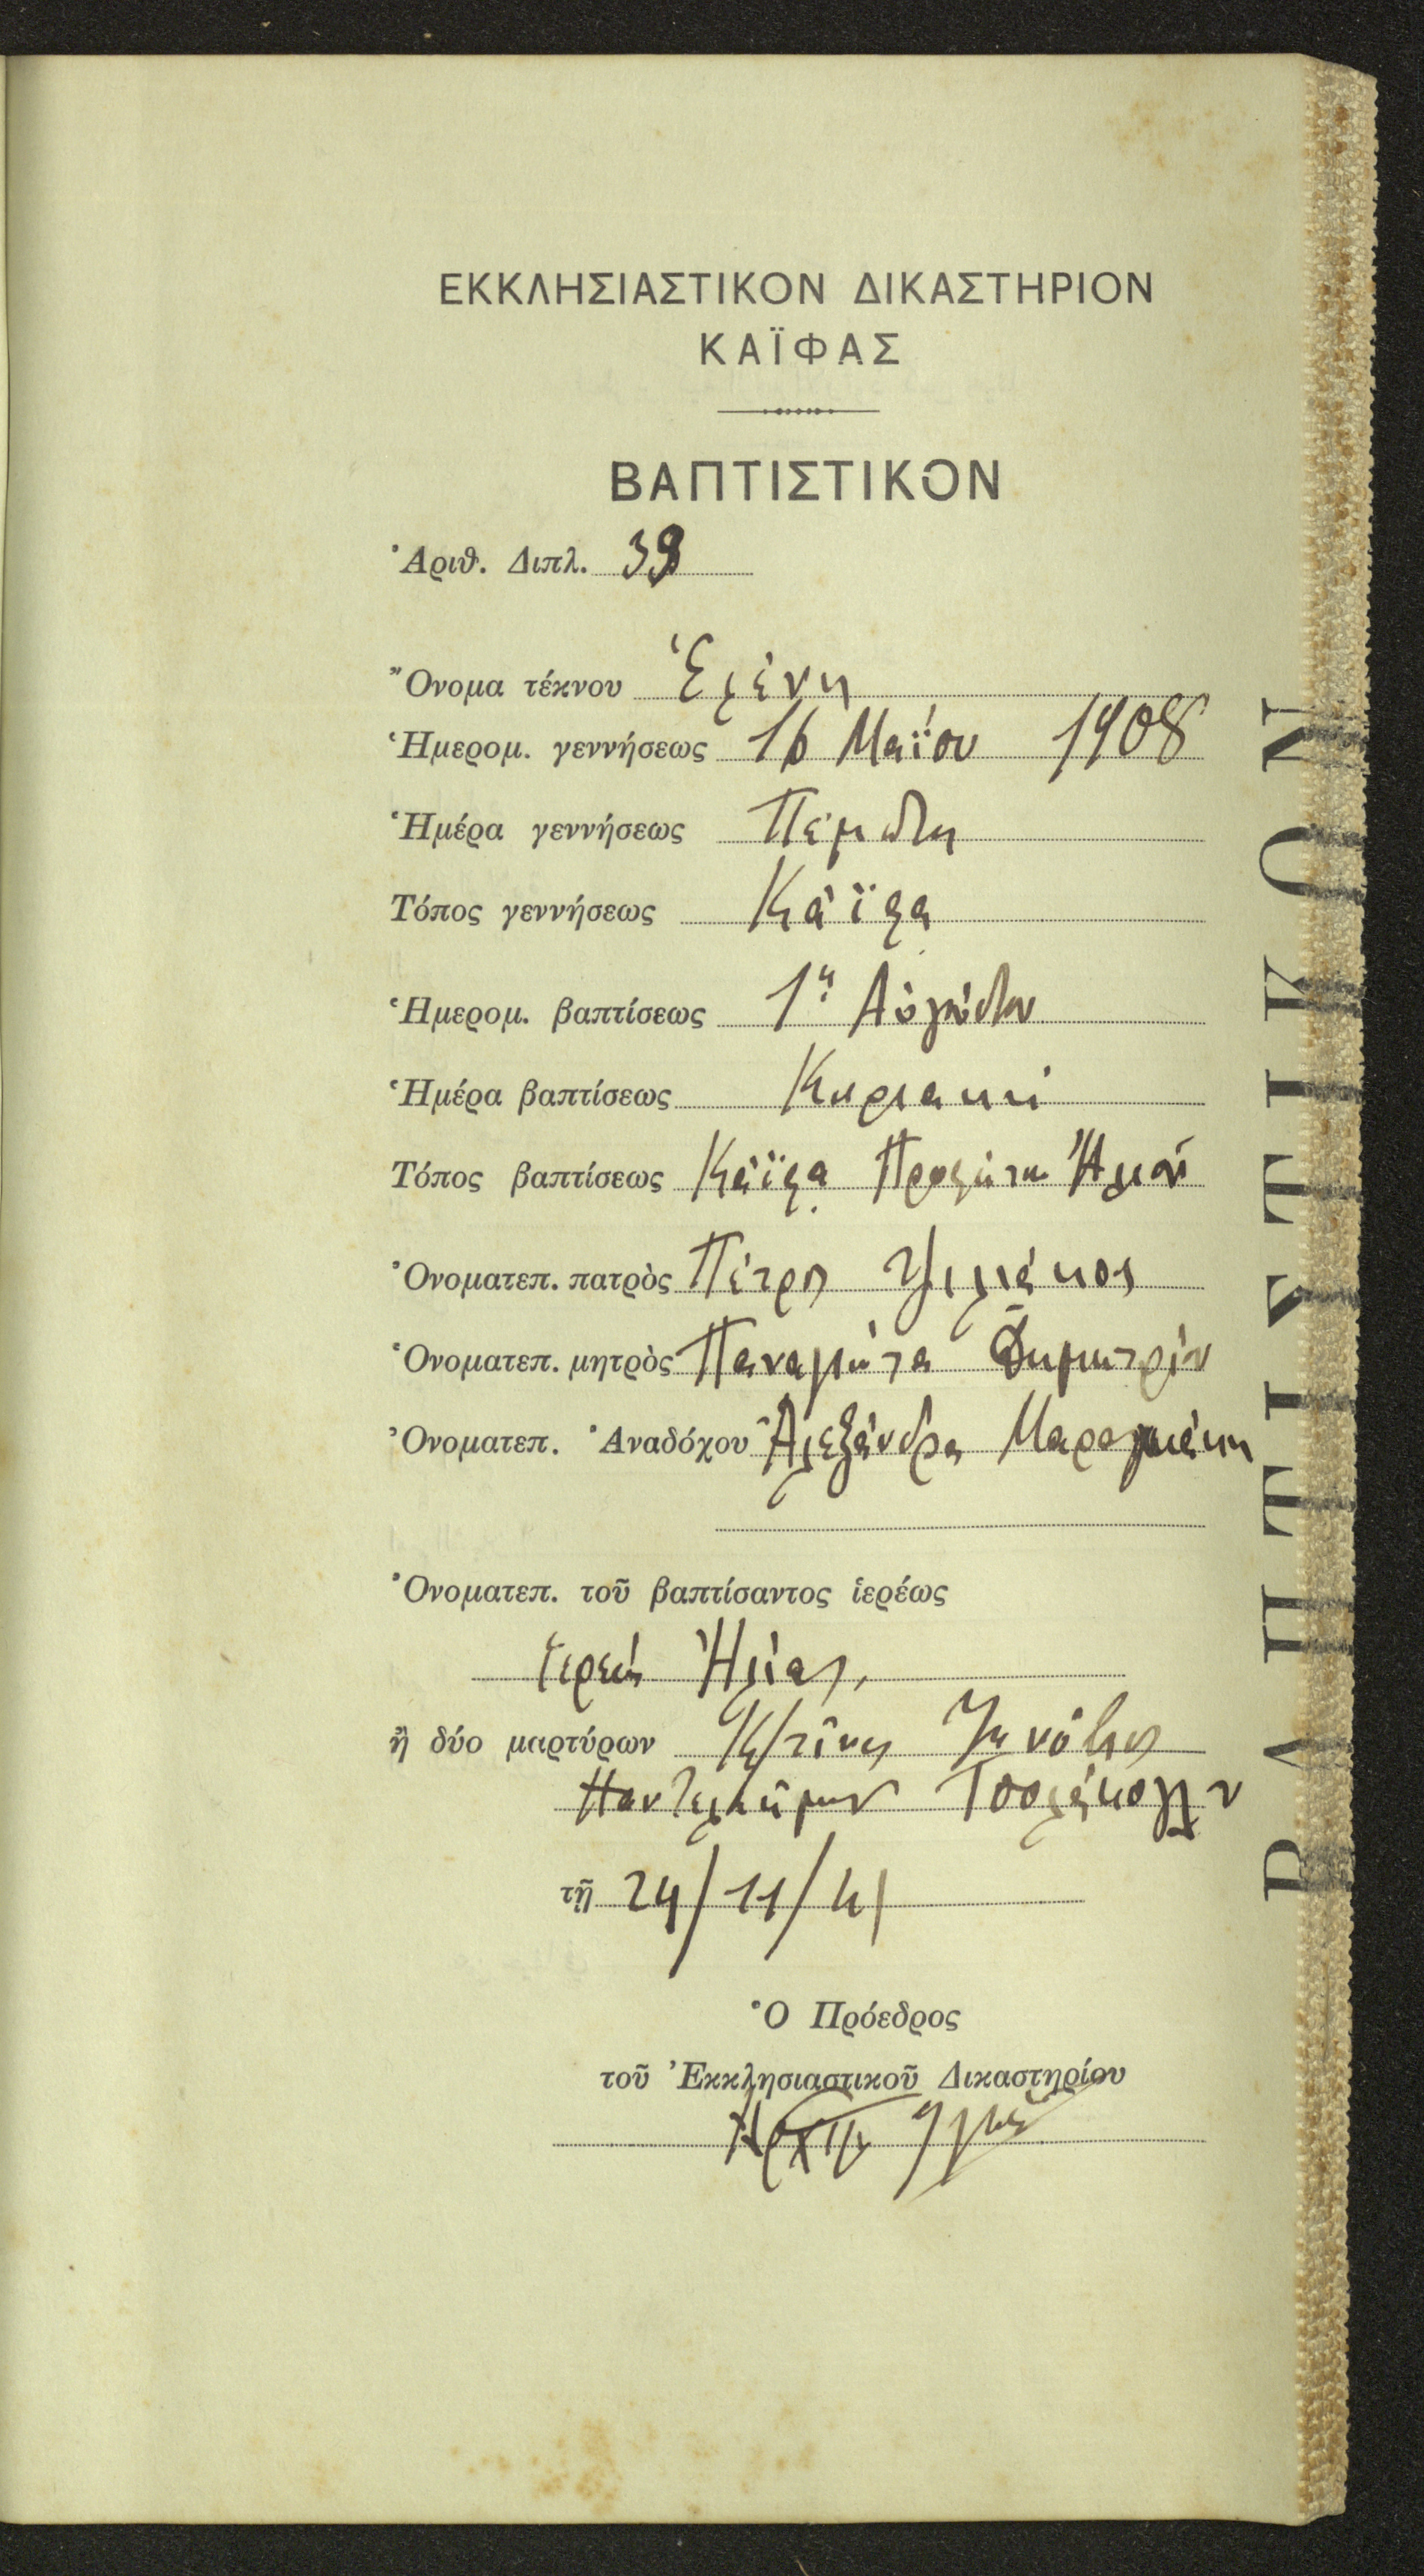 ΕΚΚΛΗΣΙΑΣΤΙΚΟΝ ΔΙΚΑΣΤΗΡΙΟΝ
ΚΑΪΦΑΣ
ΒΑΠΤΙΣΤΙΚΟΝ
Ἀριθ. Διπλ. 39
Ὄνομα τέκνου Ἑλένη
Ἡμερομ. γεννήσεως 16 Μαΐου 1908
Ἡμέρα γεννήσεως Πέμπτη
Τόπος γεννήσεως Κάϊφα
Ἡμερομ. βαπτίσεως 1η Αὐγούστου
Ἡμέρα βαπτίσεως Κυριακή
Τόπος βαπτίσεως Κάϊφα Προφήτη Ἠλιού
Ὀνοματεπ. πατρὸς Πέτρος Ψιλιάκος
Ὀνοματεπ. μητρὸς Παναγιώτα Δημητρίου
Ὀνοματεπ. Ἀναδόχου Ἀλεξάνδρα
Ὀνοματεπ. τοῦ βαπτίσαντος ἱερέως
Ἱερεύς Ἠλίας
ἢ δύο μαρτύρων Κ/τῖνος
Παντελεήμων
τῇ 24/11/41
Ὁ Πρόεδρος
τοῦ Ἐκκλησιαστικοῦ Δικαστηρίου
ΒΑΠΤΙΣΤΙΚΟΝ